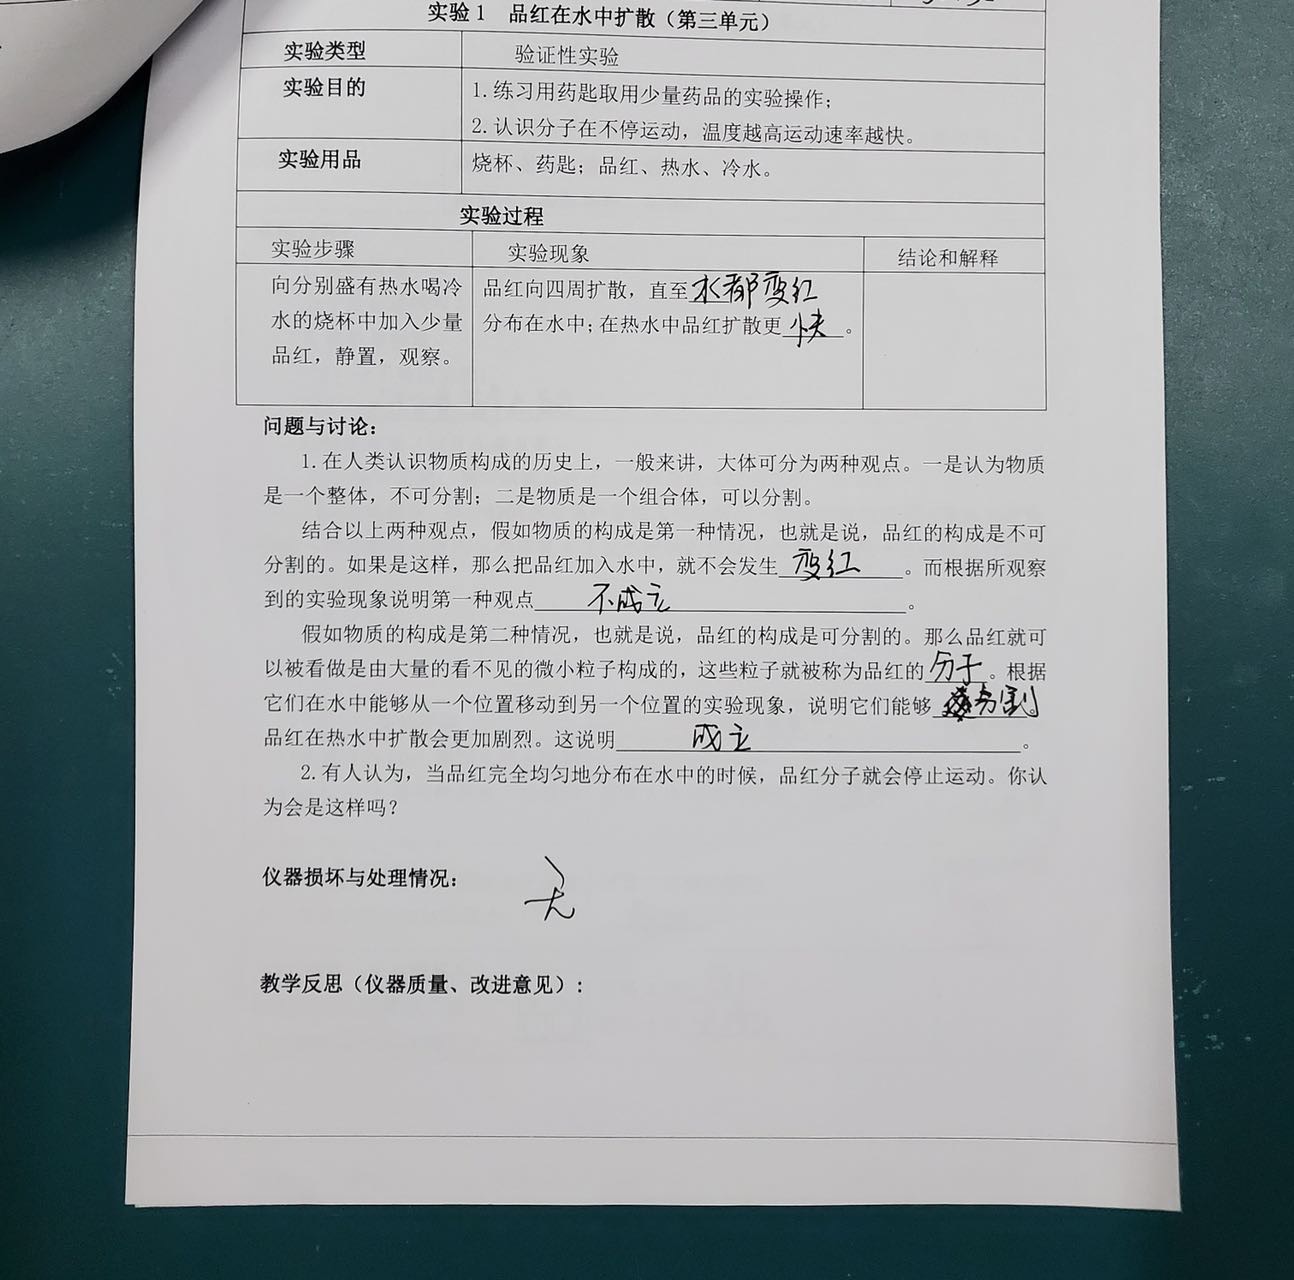 实验1 品红在水中扩散（第三单元）
实验类型 验证性实验
实验目的 1.练习用药匙取用少量药品的实验操作；
2.认识分子在不停运动，温度越高运动速率越快。
实验用品 烧杯、药匙；品红、热水、冷水。
实验过程
实验步骤 实验现象 结论和解释
向分别盛有热水喝冷 品红向四周扩散，直至水都变红
水的烧杯中加入少量 分布在水中；在热水中品红扩散更快。
品红，静置，观察。
问题与讨论：
1.在人类认识物质构成的历史上，一般来讲，大体可分为两种观点。一是认为物质
是一个整体，不可分割；二是物质是一个组合体，可以分割。
结合以上两种观点，假如物质的构成是第一种情况，也就是说，品红的构成是不可
分割的。如果是这样，那么把品红加入水中，就不会发生变红。而根据所观察
到的实验现象说明第一种观点不成立。
假如物质的构成是第二种情况，也就是说，品红的构成是可分割的。那么品红就可
以被看做是由大量的看不见的微小粒子构成的，这些粒子就被称为品红的分子。根据
它们在水中能够从一个位置移动到另一个位置的实验现象，说明它们能够分割
品红在热水中扩散会更加剧烈。这说明成立。
2.有人认为，当品红完全均匀地分布在水中的时候，品红分子就会停止运动。你认
为会是这样吗？
仪器损坏与处理情况： 无
教学反思（仪器质量、改进意见）：